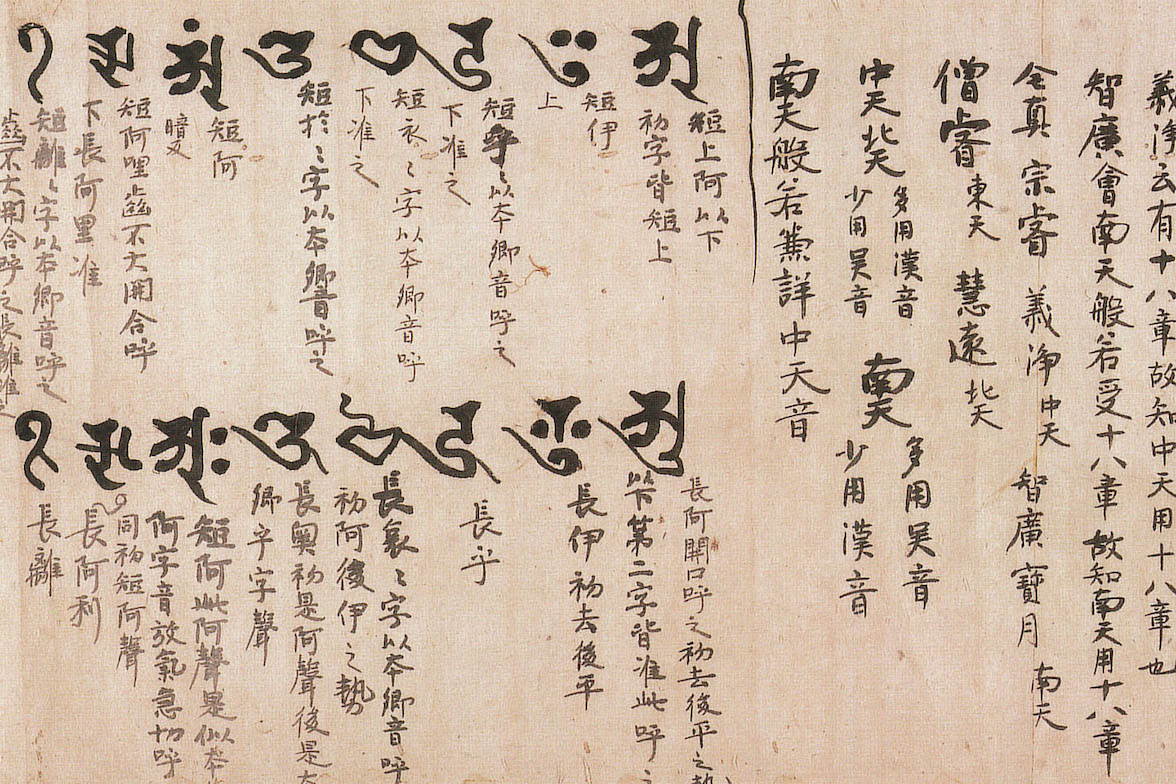 義淨云有十八章故知中天用十八章也
智廣會南天般若受十八章故知南天用十八章
全真 宗睿 義淨中天 智廣 寶月南天
僧睿東天 慧遠北天
中天北天 多用漢音
少用吳音 南天 多用吳音
少用漢音
南天般若兼詳中天音
𑖀
短上阿以下
初字皆短上
𑖂
短伊
上
𑖄
短乎〻以本鄉音呼之
下准之
𑖊
短衣〻字以本鄉音呼
下准之
𑖌
短於〻字以本鄉音呼之
𑖀𑖽
短阿
暗
𑖆
短阿哩齒不大開合呼
下長阿里准
𑖈
短離〻字以本鄉音呼之
齒不大開合呼之長離准之
𑖁
長阿開口呼之初去後平之勢
以下第二字皆准此呼之
𑖃
長伊初去後平
𑖅
長乎
𑖋
長〻字以本鄉音呼
初阿後伊之勢
𑖍
長奧初是阿聲後是本
鄉乎字聲
𑖀𑖾
短阿此阿聲是似本
阿字音放氣急切呼
同初短阿聲
𑖇
長阿利
𑖉
長離